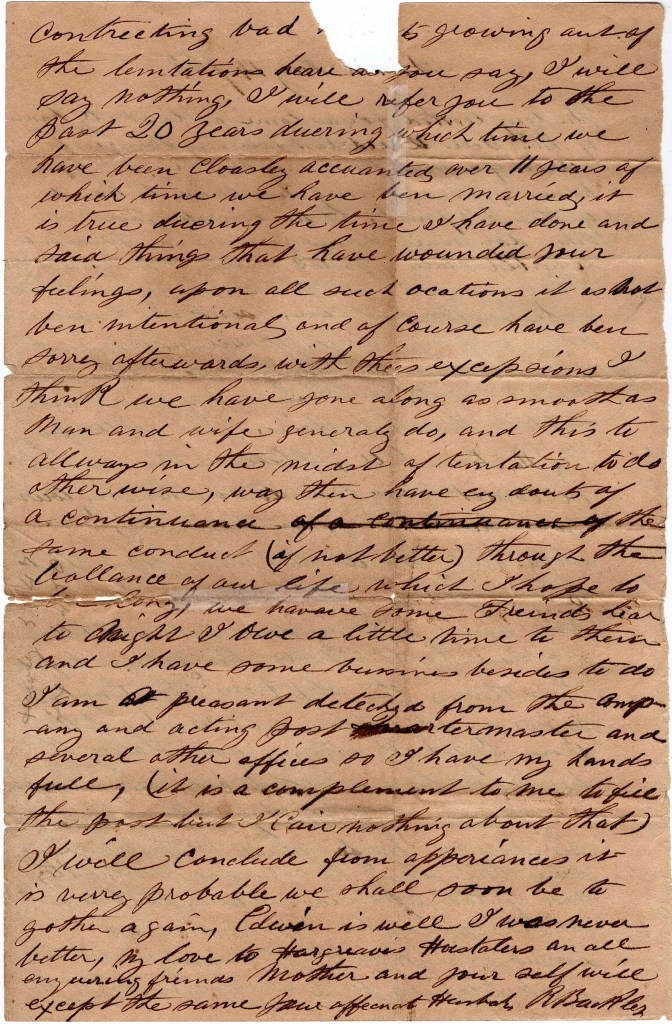 contrecting bad growing out of
the temtations heare as you say, I will
say nothing, I will refer you to the
past 20 years duering which time we
have been cloasley accuanted, over 11 years of
which time we have ben married, it
is true duering the time I have done and
said things that have wounded your
feilings, upon all such ocations it as not
ben intentional, and of course have ben
sorrey afterwards, with thees excepsions I
think we have gone along as smooth as
man and wife generaly do, and this to
allways in the midst of temtation to do
otherwise, way then have eny douts of
a continuance of a continuance of the
same conduct (if not better) through the
ballance of our life, which I hope to
be long, we havave some Freinds hear
to night I owe a little time to them
and I have some bussines besides to do
I am at preasant detechd from the comp-
any and acting post quartermaster and
several other offices so I have my hands
full, (it is a complement to me to fill
the post but I cair nothing about that)
I will conclude from apperiances it
is verrey probable we shall soon be to
gother again, Edwin is well I was never
better, my love to Hargreavis Hustalers an all
enquering freinds Mother and your self will
except the same your affecnate Husband R Buckley